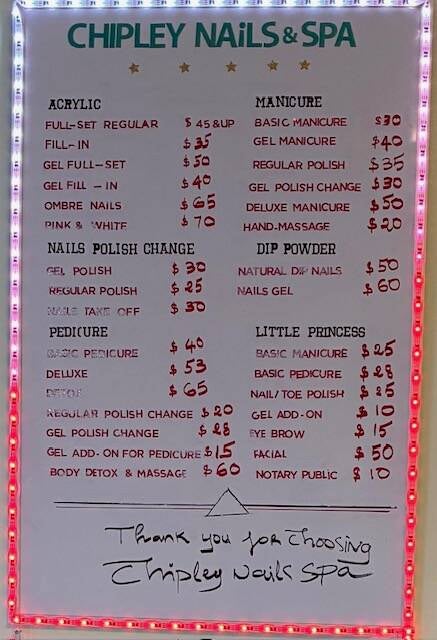 CHIPLEY NAiLS & SPA
ACRYLIC
FULL-SET REGULAR $ 45 &UP
FILL-IN $ 35
GEL FULL-SET $ 50
GEL FILL-IN $ 40
OMBRE NAILS $ 65
PINK & WHITE $ 70
NAILS POLISH CHANGE
GEL POLISH $ 30
REGULAR POLISH $ 25
NAILS TAKE OFF $ 30
PEDICURE
BASIC PEDICURE $ 40
DELUXE $ 53
DETOX $ 65
REGULAR POLISH CHANGE $ 20
GEL POLISH CHANGE $ 28
GEL ADD-ON FOR PEDICURE $ 15
BODY DETOX & MASSAGE $ 60
MANICURE
BASIC MANICURE $30
GEL MANICURE $40
REGULAR POLISH $35
GEL POLISH CHANGE $30
DELUXE MANICURE $50
HAND-MASSAGE $20
DIP POWDER
NATURAL DIP NAILS $50
NAILS GEL $60
LITTLE PRINCESS
BASIC MANICURE $25
BASIC PEDICURE $28
NAIL/TOE POLISH $25
GEL ADD-ON $10
EYE BROW $15
FACIAL $50
NOTARY PUBLIC $10
Thank you for Choosing
Chipley Nails Spa